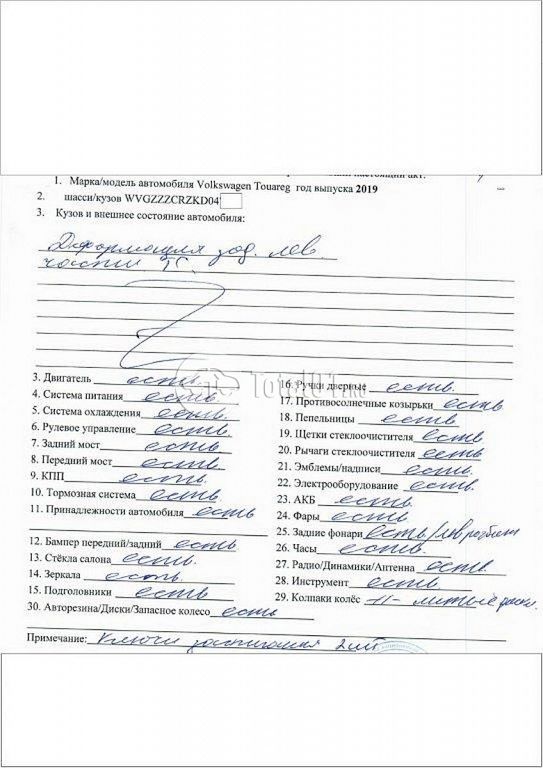 1. Марка/модель автомобиля Volkswagen Touareg год выпуска 2019
2. шасси/кузов WVGZZZCRZKD04
3. Кузов и внешнее состояние автомобиля:
Деформация зад. лев.
части ТС.
Total01.ru
3. Двигатель есть.
4. Система питания есть
5. Система охлаждения есть.
6. Рулевое управление есть.
7. Задний мост есть
8. Передний мост есть
9. КПП есть.
10. Тормозная система есть
11. Принадлежности автомобиля есть
12. Бампер передний/задний есть
13. Стёкла салона есть.
14. Зеркала есть.
15. Подголовники есть
30. Авторезина/Диски/Запасное колесо есть
16. Ручки дверные есть.
17. Противосолнечные козырьки есть
18. Пепельницы есть
19. Щетки стеклоочистителя есть
20. Рычаги стеклоочистителя есть
21. Эмблемы/надписи есть.
22. Электрооборудование есть
23. АКБ есть.
24. Фары есть.
25. Задние фонари есть/лев разбит
26. Часы есть.
27. Радио/Динамики/Антенна есть.
28. Инструмент есть
29. Колпаки колёс -//- литые диски.
Примечание: Ключи зажигания 2шт